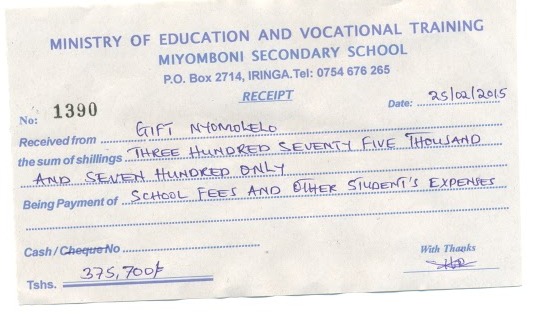 MINISTRY OF EDUCATION AND VOCATIONAL TRAINING
MIYOMBONI SECONDARY SCHOOL
P.O. Box 2714, IRINGA.Tel: 0754 676 265
RECEIPT
Date: 25/02/2015
No: 1390
Received from GIFT NYOMOLELO
the sum of shillings THREE HUNDRED SEVENTY FIVE THOUSAND
AND SEVEN HUNDRED ONLY
Being Payment of SCHOOL FEES AND OTHER STUDENT'S EXPENSES
Cash / Cheque No
With Thanks
Tshs. 375,700/=